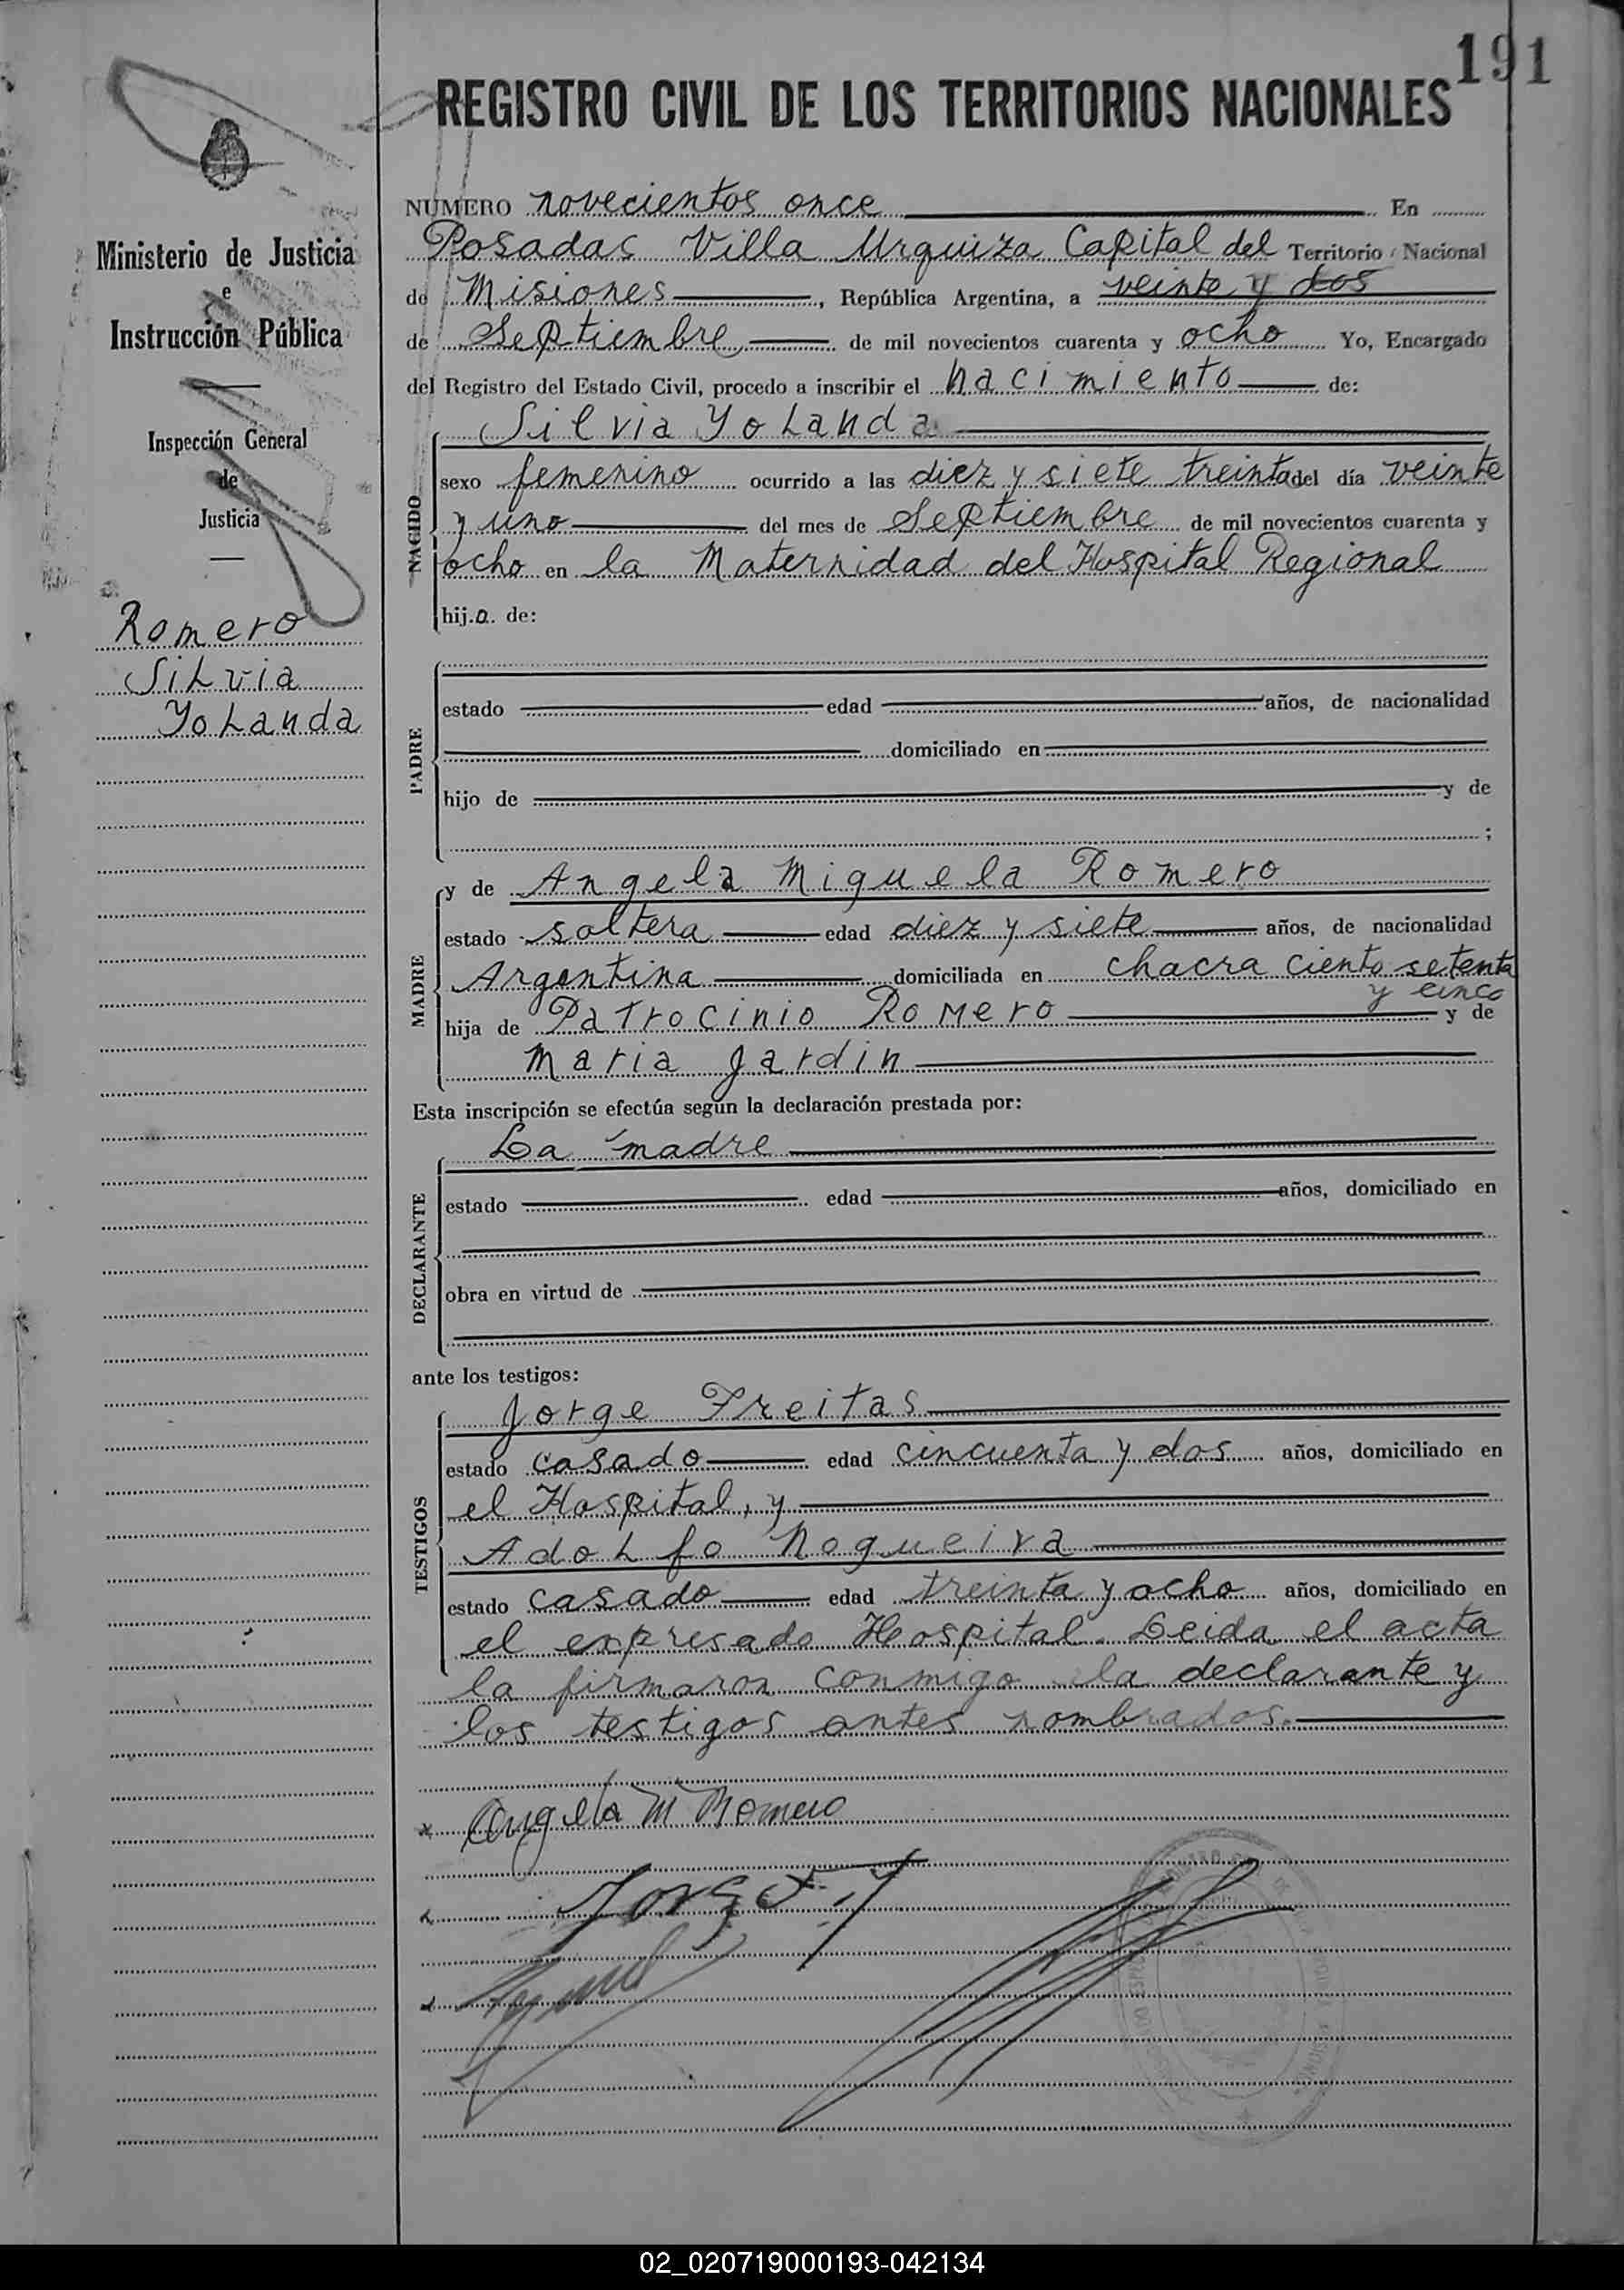 191
REGISTRO CIVIL DE LOS TERRITORIOS NACIONALES
Ministerio de Justicia
e
Instrucción Pública
Inspección General
de
Justicia
Romero
Silvia
Yolanda
NUMERO novecientos once En
Posadas Villa Urquiza Capital del Territorio Nacional
de Misiones, República Argentina, a veinte y dos
de Septiembre de mil novecientos cuarenta y ocho Yo, Encargado
del Registro del Estado Civil, procedo a inscribir el nacimiento de:
NACIDO
Silvia Yolanda
sexo femenino ocurrido a las diez y siete treinta del día veinte
y uno del mes de Septiembre de mil novecientos cuarenta y
ocho en la Maternidad del Hospital Regional
hija de:
PADRE
estado edad años, de nacionalidad
domiciliado en
hijo de y de
;
MADRE
y de Angela Miguela Romero
estado soltera edad diez y siete años, de nacionalidad
Argentina domiciliada en chacra ciento setenta
y cinco
hija de Patrocinio Romero y de
Maria Jardin
Esta inscripción se efectúa según la declaración prestada por:
DECLARANTE
La madre
estado edad años, domiciliado en
obra en virtud de
ante los testigos:
TESTIGOS
Jorge Freitas
estado casado edad cincuenta y dos años, domiciliado en
el Hospital, y
Adolfo Nogueira
estado casado edad treinta y ocho años, domiciliado en
el expresado Hospital. Leida el acta
la firmaron conmigo la declarante y
los testigos antes nombrados.
Angela M Romero
Jorge F.
02_020719000193-042134